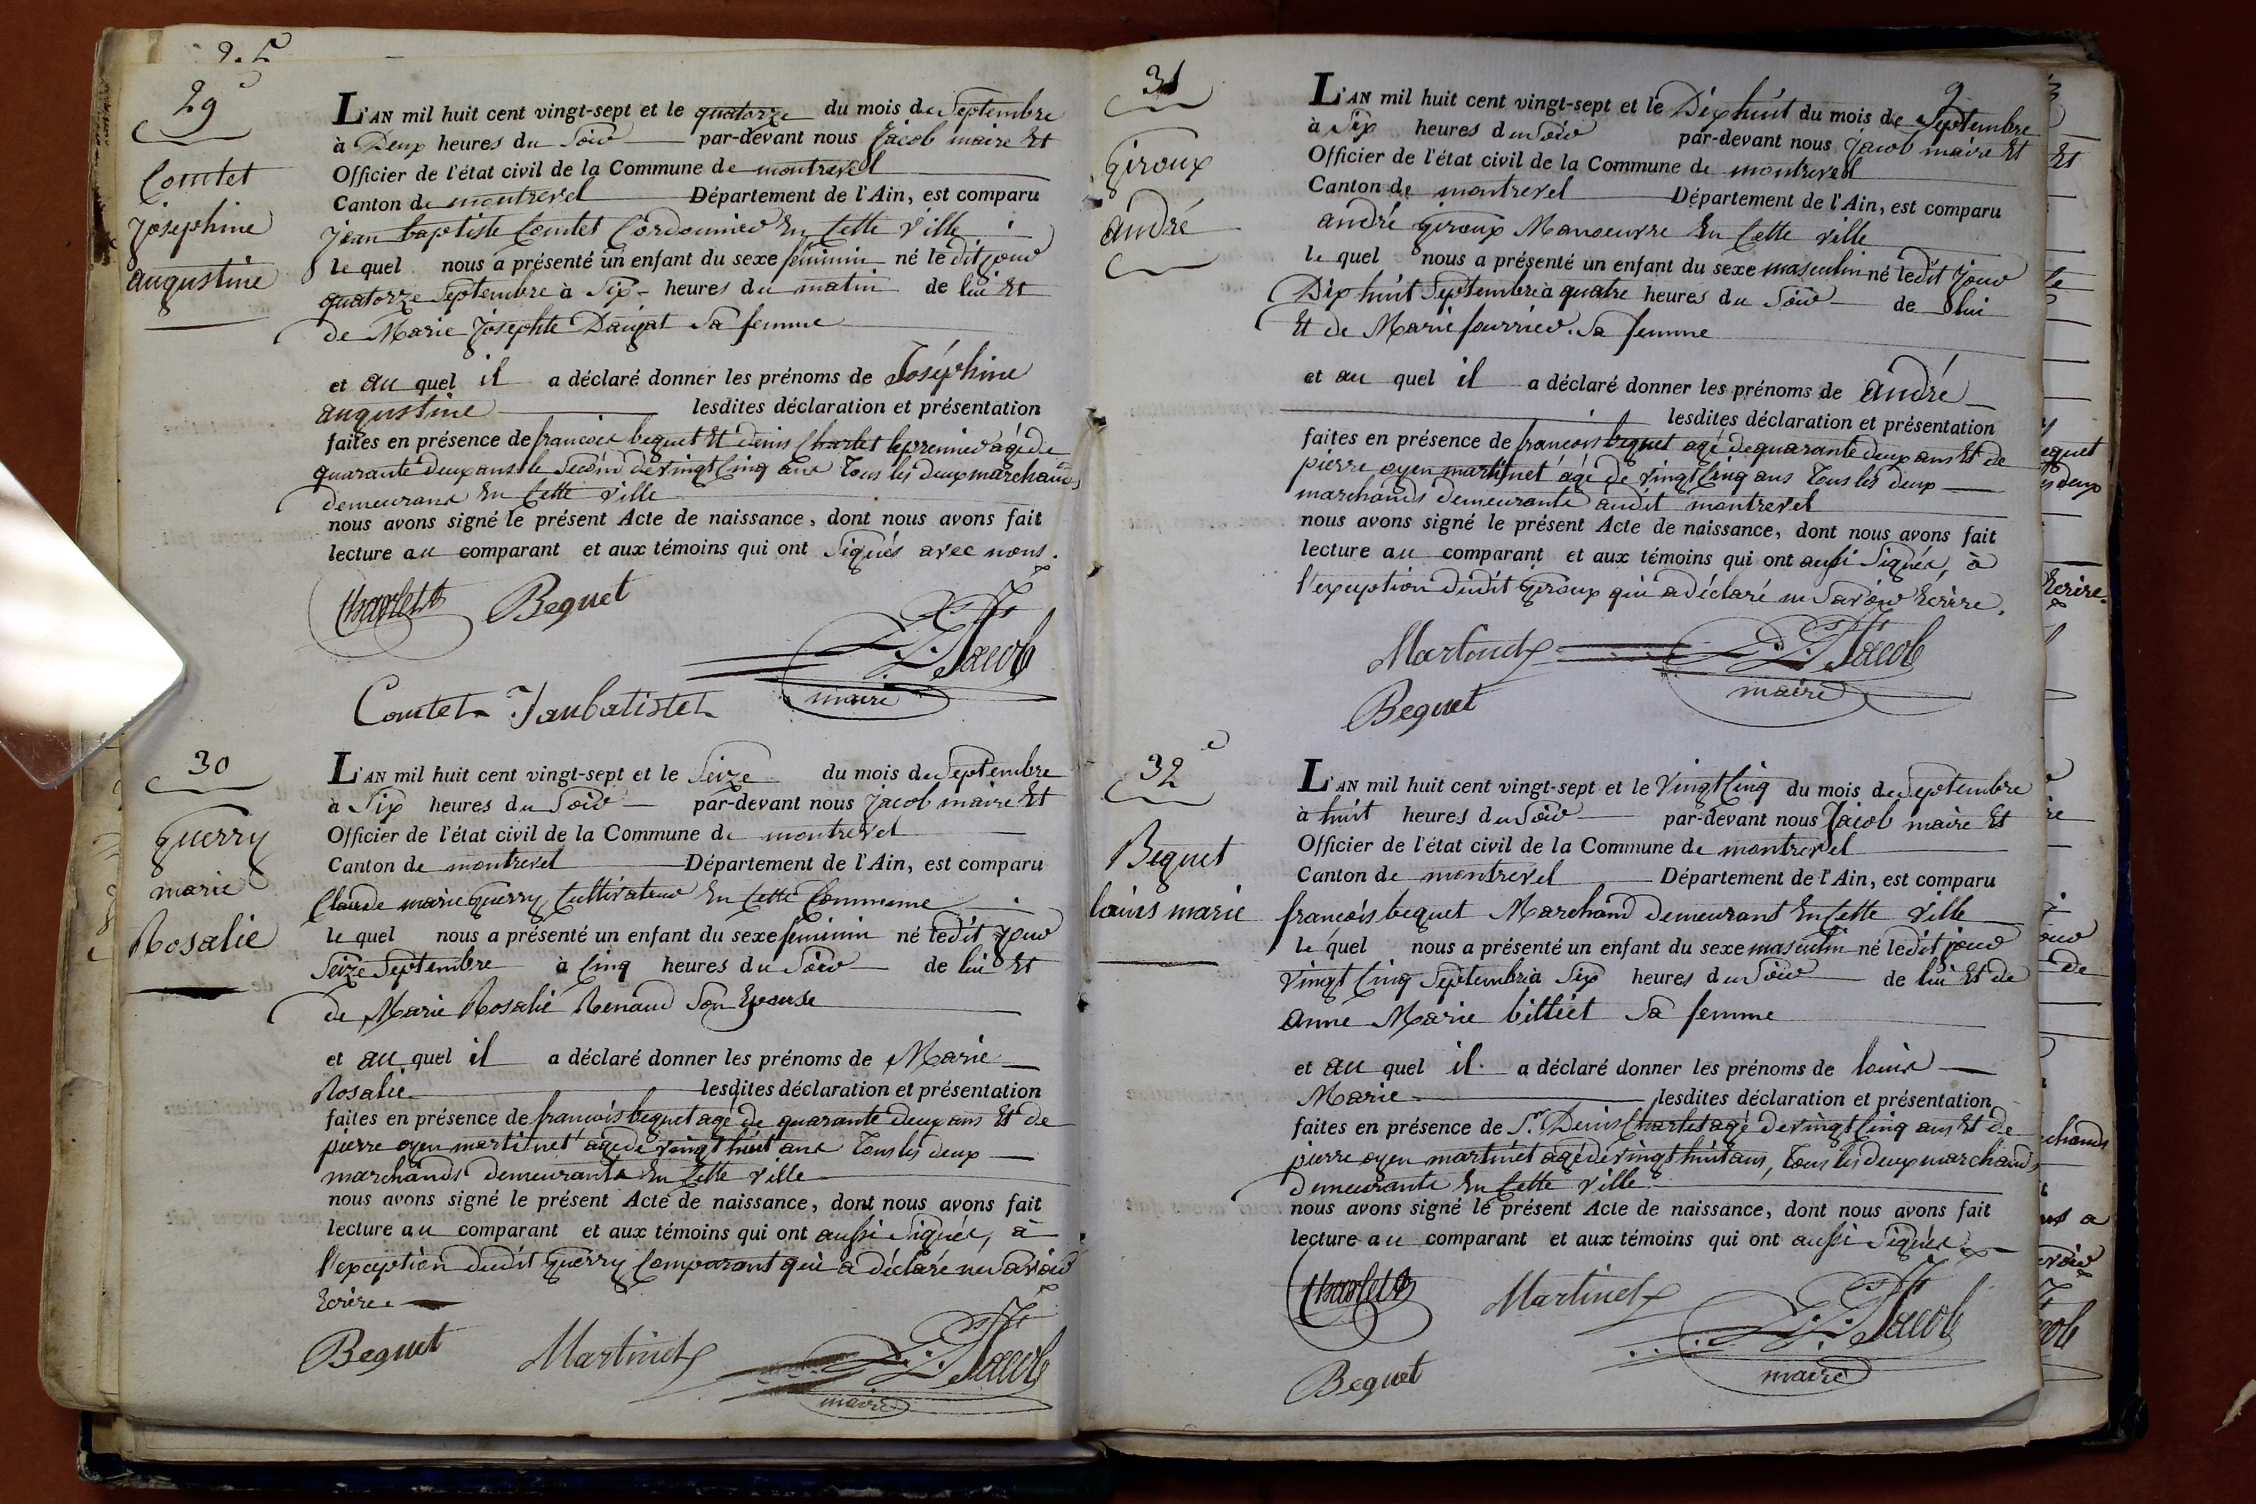 29
Comtet
joséphine
augustine
L'AN mil huit cent vingt-sept et le quatorze du mois de Septembre
à Deux heures du Soir par-devant nous Jacob maire Et
Officier de l'état civil de la Commune de montrevel
Canton de montrevel Département de l'Ain, est comparu
jean baptiste Comtet Cordonnier En Cette Ville
le quel nous a présenté un enfant du sexe féminin né le dit jour
quatorze Septembre à Six heures du matin de lui Et
de Marie josephte Daujat Sa femme
et au quel il a déclaré donner les prénoms de Joséphine
augustine lesdites déclaration et présentation
faites en présence de francois bequet Et denis Charlet le premier âgé de
quarante deux ans le Second de vingt Cinq ans Tous les deux marchands
demeurans En Cette ville
nous avons signé le présent Acte de naissance, dont nous avons fait
lecture au comparant et aux témoins qui ont Signés avec nous.
Charlet Bequet
Jacob
maire
Comtet Janbatistet
30
guerry
marie
Rosalie
L'AN mil huit cent vingt-sept et le Seize du mois de Septembre
à Six heures du Soir par-devant nous Jacob maire Et
Officier de l'état civil de la Commune de montrevel
Canton de montrevel Département de l'Ain, est comparu
Claude marie guerry Cultivateur En Cette Commune
le quel nous a présenté un enfant du sexe féminin né ledit jour
Seize Septembre à Cinq heures du Soir de lui Et
de Marie Rosalie Renaud Son Epouse
et au quel il a déclaré donner les prénoms de Marie
Rosalie lesdites déclaration et présentation
faites en présence de francois bequet agé de quarante deux ans Et de
pierre oyen martinet âgé de vingt huit ans Tous les deux
marchands demeurants En Cette ville
nous avons signé le présent Acte de naissance, dont nous avons fait
lecture au comparant et aux témoins qui ont aussi Signés, à
l'exception dudit guerry Comparant qui a déclaré ne savoir
Ecrire.
Bequet Martinet Jacob
maire
31
giroux
andré
L'AN mil huit cent vingt-sept et le Dix huit du mois de Septembre
à Six heures du Soir par-devant nous Jacob maire Et
Officier de l'état civil de la Commune de montrevel
Canton de montrevel Département de l'Ain, est comparu
andré giroux Manoeuvre En Cette ville
le quel nous a présenté un enfant du sexe masculin né ledit jour
Dix huit Septembre à quatre heures du Soir de lui
Et de Marie fourrier Sa femme
et au quel il a déclaré donner les prénoms de andré
lesdites déclaration et présentation
faites en présence de francois bequet agé de quarante deux ans Et de
pierre oyen martinet âgé de vingt Cinq ans Tous les deux
marchands demeurants audit montrevel
nous avons signé le présent Acte de naissance, dont nous avons fait
lecture au comparant et aux témoins qui ont aussi Signés, à
l'exception dudit giroux qui a déclaré ne Savoir Ecrire.
Martinet Jacob
maire
Bequet
32
Bequet
louis marie
L'AN mil huit cent vingt-sept et le Vingt Cinq du mois de Septembre
à huit heures du Soir par-devant nous Jacob maire Et
Officier de l'état civil de la Commune de montrevel
Canton de montrevel Département de l'Ain, est comparu
francois bequet Marchand demeurant En Cette ville
le quel nous a présenté un enfant du sexe masculin né ledit jour
Vingt Cinq Septembre à Six heures du Soir de lui Et de
anne Marie billiet Sa femme
et au quel il a déclaré donner les prénoms de louis
Marie lesdites déclaration et présentation
faites en présence de Sr. Denis Charlet agé de vingt Cinq ans Et de
pierre oyen martinet agé de vingt huit ans, Tous les deux marchands
demeurants En Cette ville
nous avons signé le présent Acte de naissance, dont nous avons fait
lecture au comparant et aux témoins qui ont aussi Signés
Charlet Martinet Jacob
maire
Bequet